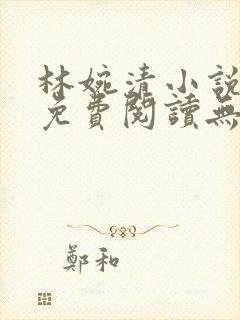 林婉清小說
免費閱讀無
鄭和